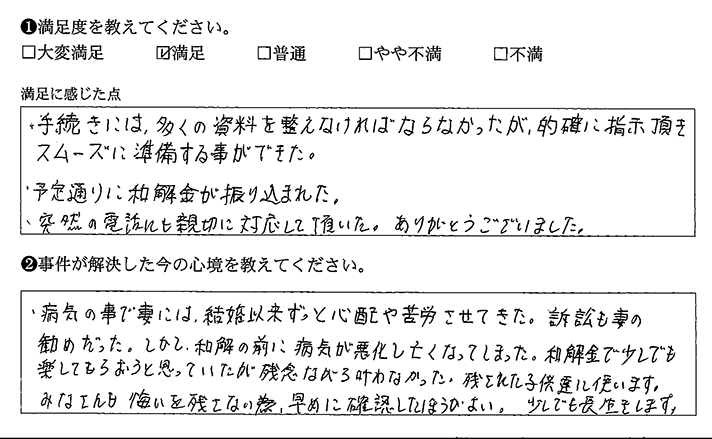 ❶満足度を教えてください。
□大変満足 ☑満足 □普通 □やや不満 □不満
満足に感じた点
・手続きには、多くの資料を整えなければならなかったが、的確に指示頂き
スムーズに準備する事ができた。
・予定通りに和解金が振り込まれた。
・突然の電話にも親切に対応して頂いた。ありがとうございました。
❷事件が解決した今の心境を教えてください。
・病気の事で妻には、結婚以来ずっと心配や苦労させてきた。訴訟も妻の
勧めだった。しかし、和解の前に病気が悪化し亡くなってしまった。和解金で少しでも
楽してもらおうと思っていたが残念ながら叶わなかった。残された子供達に使います。
みなさんも悔いを残さない為、早めに確認したほうがよい。少しでも長生きします。